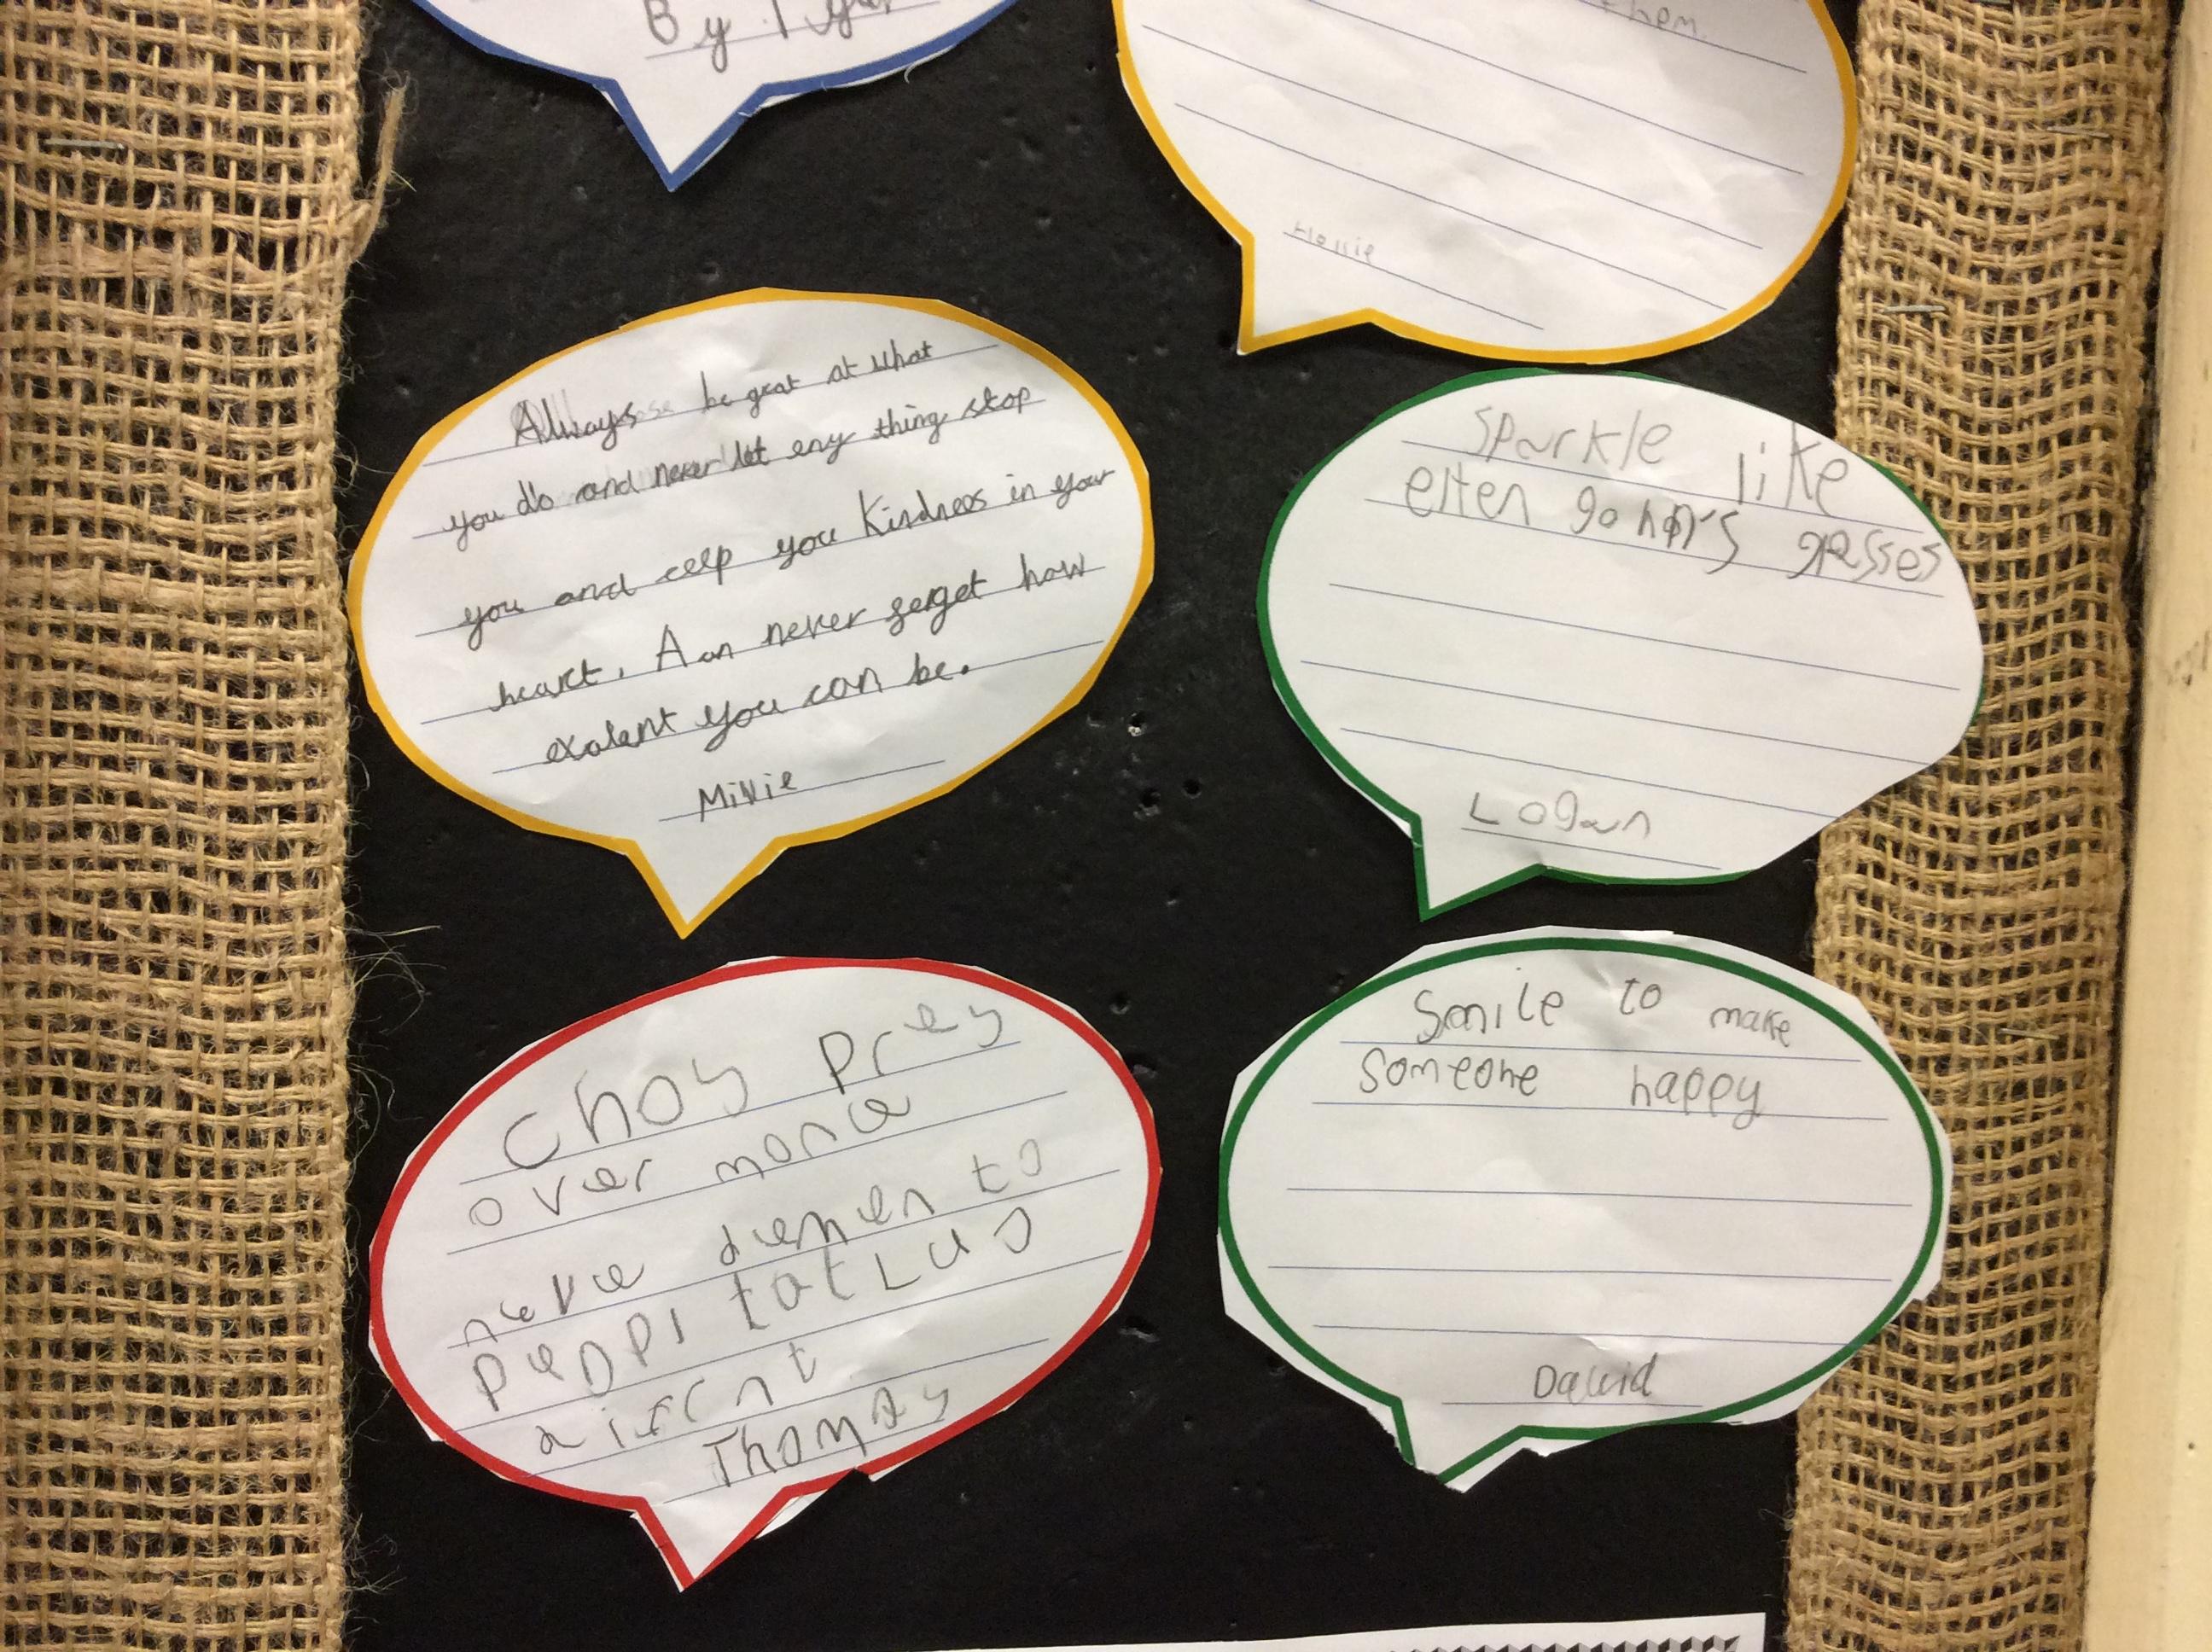 By Tyler
them.
Hollie
Always be great at what
you do and never let eny thing stop
you and ceep you Kindness in your
heart. A an never ferget how
exalent you can be.
Millie
Sparkle like
elten gohn's gasses
Logan
Choy prey
over mone
neve diemen to
peppl tat Lu
difrnt
Thomas
Smile to make
someone happy
David